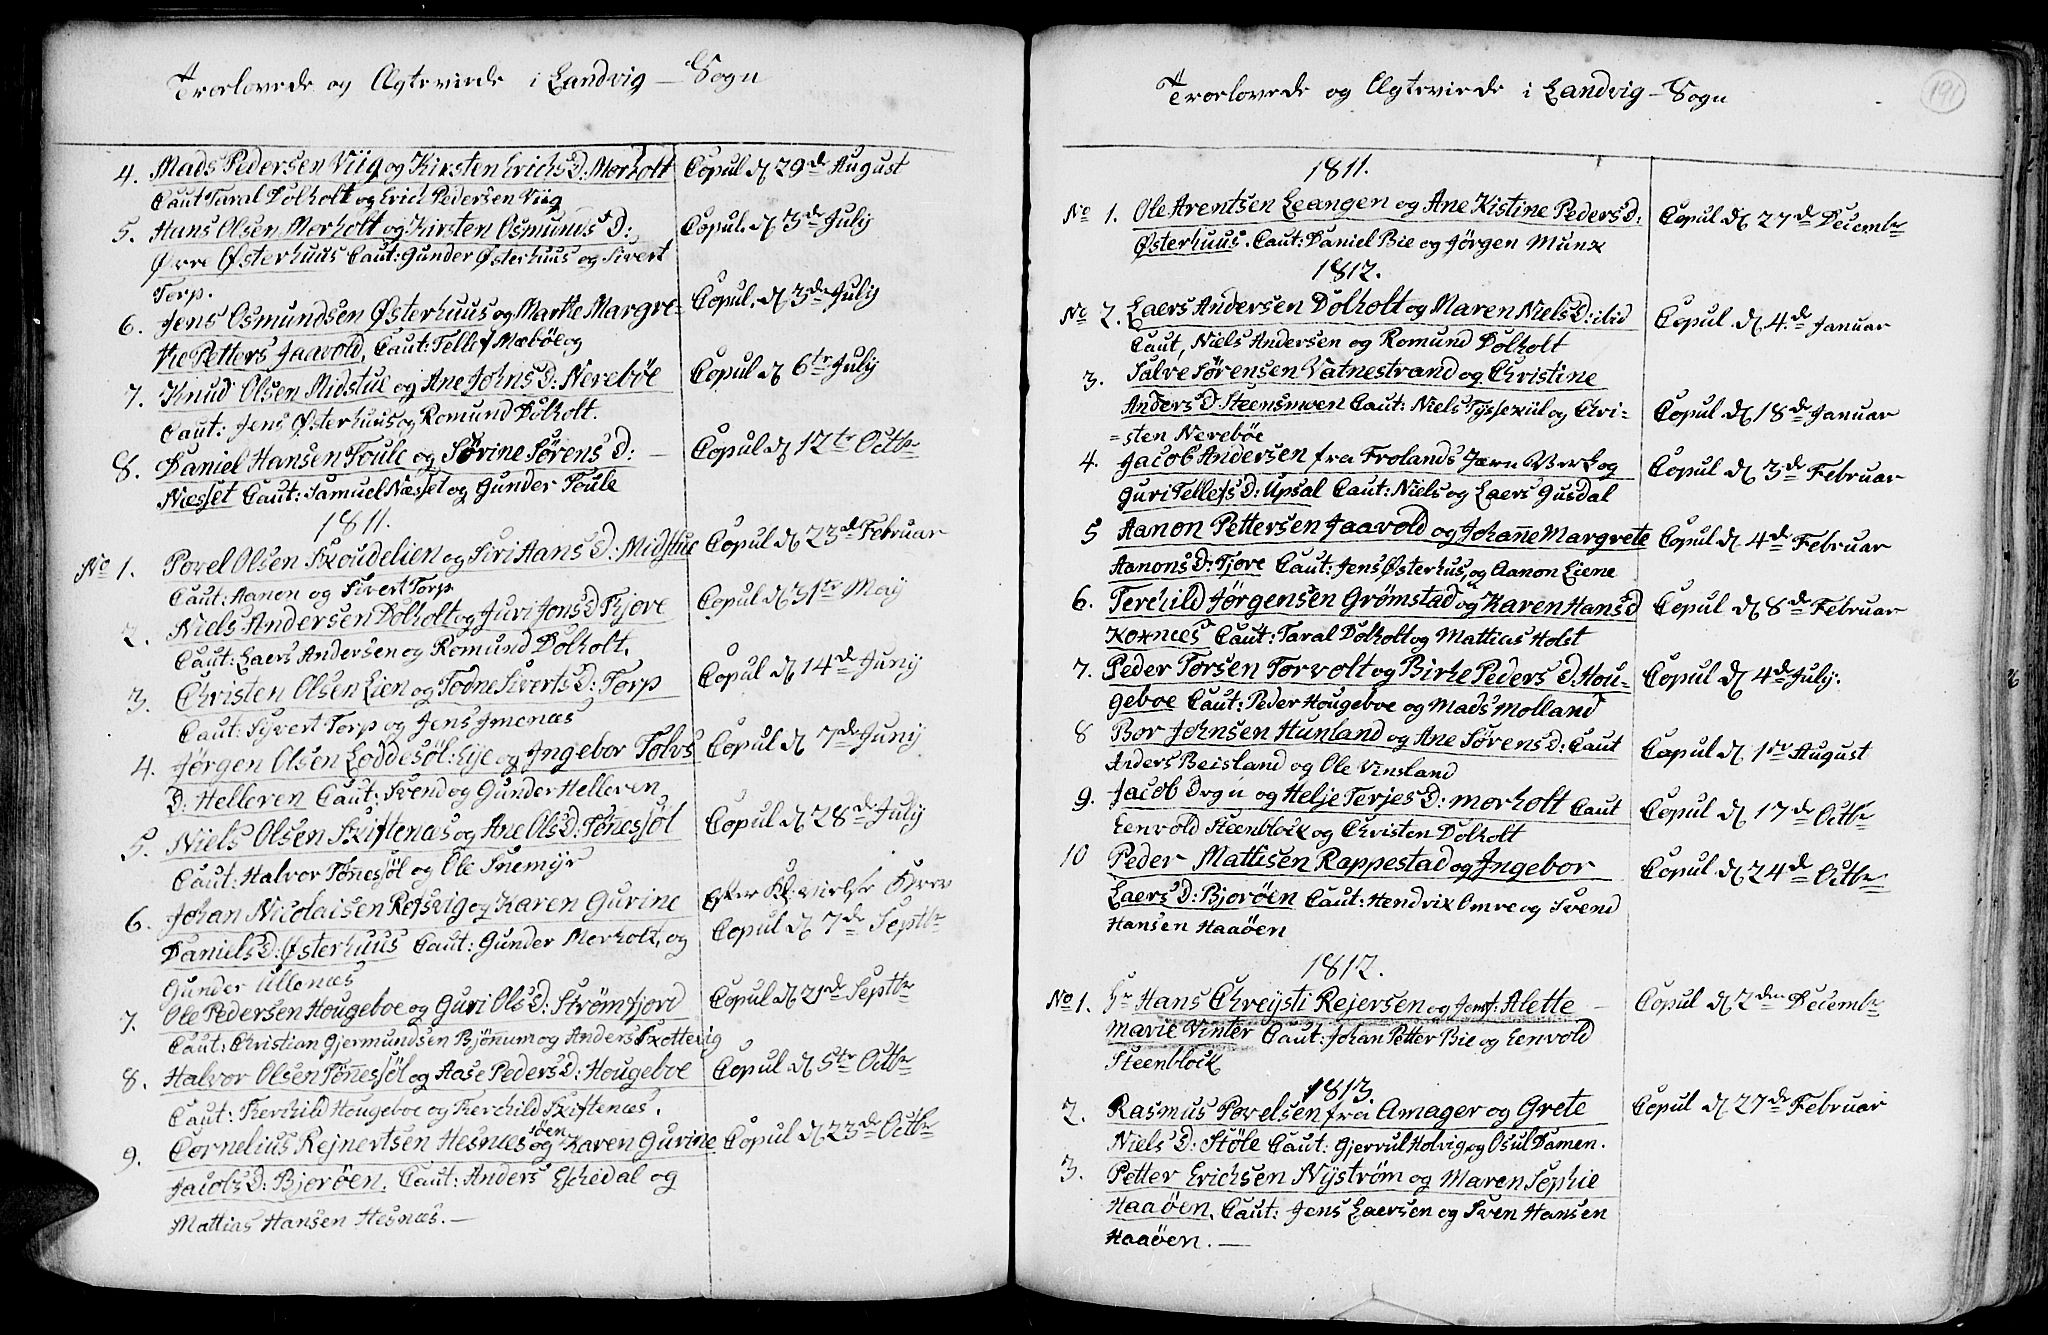 Trorlovede og Ægteviede i Landvig - Sogn
4. Mads Pedersen Viig og Kirsten Erichs D: Morholt Copul d. 29de August
Caut Taral Dolholt og Erich Pedersen Viig
5. Hans Olsen Morholt og Kirsten Osmunds D: Copul. d. 3de July
Øvre Østerhuus Caut: Gunder Østerhuus og Sivert
Torp.
6. Jens Osmundsen Østerhuus og Marthe Margre- Copul. d. 3de July
the Petters Jaavold, Caut: Tellef Mæbøe og
7. Knud Olsen Midstue og Ane Johns D: Nereböe Copul d. 6te July
Caut: Jens Østerhuus og Romund Dolholt.
8. Daniel Hansen Foule og Sørine Sørens D: - Copul d. 12te Octbr
Næsset Caut: Samuel Næsset og Gunder Foule
1811.
No 1. Povel Olsen Skoudelien og Siri Aans D: Midstue Copul d. 23de Februar
Caut: Aanen og Sivert Torp
2. Niels Andersen Dolholt og Juri Jons D Fjore Copul d. 31te May
Caut: Laers Andersen og Romund Dolholt.
3. Christen Olsen Lien og Todne Siverts D: Torp Copul d. 14de Juny
Caut: Syvert Torp og Jens Imenæs
4. Jørgen Olsen Loddesøl: Eje og Ingebor Tolvs Copul d. 7de Juny
D: Helleren Caut: Svend og Gunder Helleren
5. Niels Olsen Skiftenæs og Ane Ols D: Tønesøl Copul d. 28de July
Caut: Halvor Tønesøl og Ole Snemyr
6. Johan Nicolaisen Refsvig og Karen Gurine Efter Kl: Vielse Brev
Daniels D: Østerhuus Caut: Gunder Morholt, og Copul d. 7de Septbr
Gunder Ullenæs
7. Ole Pedersen Hougeboe og Guri Ols D: Strømfjord Copul d. 21de Septbr
Caut: Christian Gjermundsen Bjønum og Anders Skottevig
8. Halvor Olsen Tønesøl og Aase Peders D: Hougeboe Copul d. 5te Octbr
Caut: Therchild Hougeboe og Therchild Skiftenæs.
9. Cornelius Rejnertsen Hesnæsøen og Karen Gurine Copul d. 23de Octbr
Jacobs D: Bjorøen. Caut: Anders Eschedal og
Mattias Hansen Hesnæs. -
Trorlovede og Ægteviede i Landvig - Sogn
191
1811.
No 1. Ole Arentsen Leangen og Ane Kistine Peders D: Copul d. 27de Decembr
Østerhuus. Caut: Daniel Bie og Jørgen Munk
1812.
No 2. Laers Andersen Dolholt og Maren Niels D: ibid Copul d. 4de Januar
Caut, Niels Andersen og Romund Dolholt
3. Salve Sørensen Vatnestrand og Christine
Anders D: Steensmoen Caut: Niels Tyssekiil og Chri- Copul d. 18de Januar
=sten Nerebøe
4. Jacob Andersen fra Frolands Jærn Verk og Copul d. 3de Februar
Guri Tellefs D: Upsal Caut: Niels og Laers Gusdal
5 Aanon Pettersen Jaavold og Johanne Margrete Copul d. 4de Februar
Aanons D: Fjore Caut: Jens Østerhus, og Aanon Liene
6. Terchild Jørgensen Grømstad og Karen Hans D Copul d. 8de Februar
Koxnæs Caut: Taral Dolholt og Mattias Holst
7. Peder Torsen Torvolt og Birthe Peders D: Hou- Copul d. 4de July.
geboe Caut: Peder Hougeboe og Mads Molland
8 Bor Johnsen Hunland og Ane Sørens D: Caut Copul d. 1ste August
Anders Beisland og Ole Vinsland
9. Jacob og Helje Terjes D: Morholt Caut Copul d. 17de Octbr
Eenvold Steenblock og Christen Dolholt
10 Peder Mattisen Rappestad og Ingebor Copul d. 24de Octbr
Laers D: Bjorøen Caut: Hendrik Omre og Svend
Hansen Haaøen
1812.
No 1. Hr Hans Chreysti Rejersen og Jomf: Alette - Copul d. 2den Decembr
Marie Vinter Caut: Johan Petter Bie og Eenvold
Steenblock
1813.
2. Rasmus Povelsen fra Amager og Grete Copul d. 27de Februar
Niels D: Støle Caut: Gjervul Holvig og Osul Damen.
3. Petter Erichsen Nyström og Maren Sophie
Haaøen. Caut: Jens Laersen og Sven Hansen
Haaøen. -